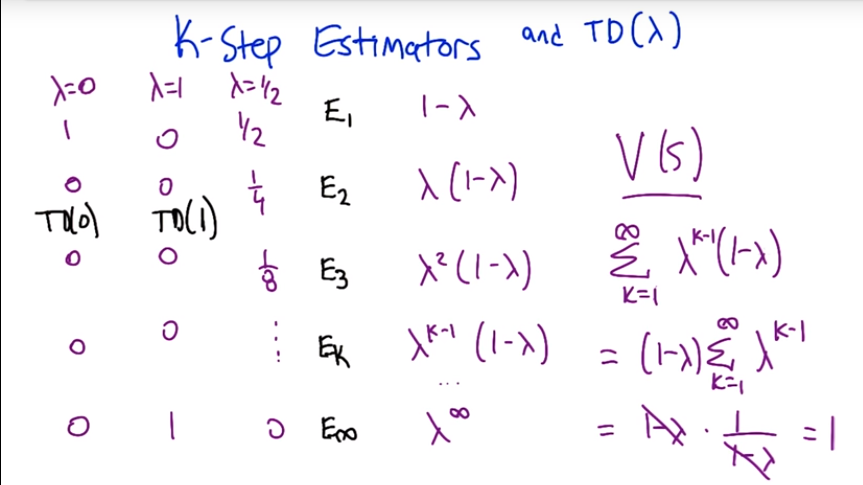 K-Step Estimators and TD(λ)
λ=0 λ=1 λ=1/2
1 0 1/2 E₁ 1-λ
V(s)
0 0 1/4 E₂ λ(1-λ)
TD(0) TD(1)
0 0 1/8 E₃ λ²(1-λ) ∑_{K=1}^{∞} λ^{K-1}(1-λ)
0 0 ⋮ E_K λ^{K-1}(1-λ) = (1-λ)∑_{K=1}^{∞} λ^{K-1}
...
0 1 0 E_∞ λ^∞ = 1-λ · 1/(1-λ) = 1